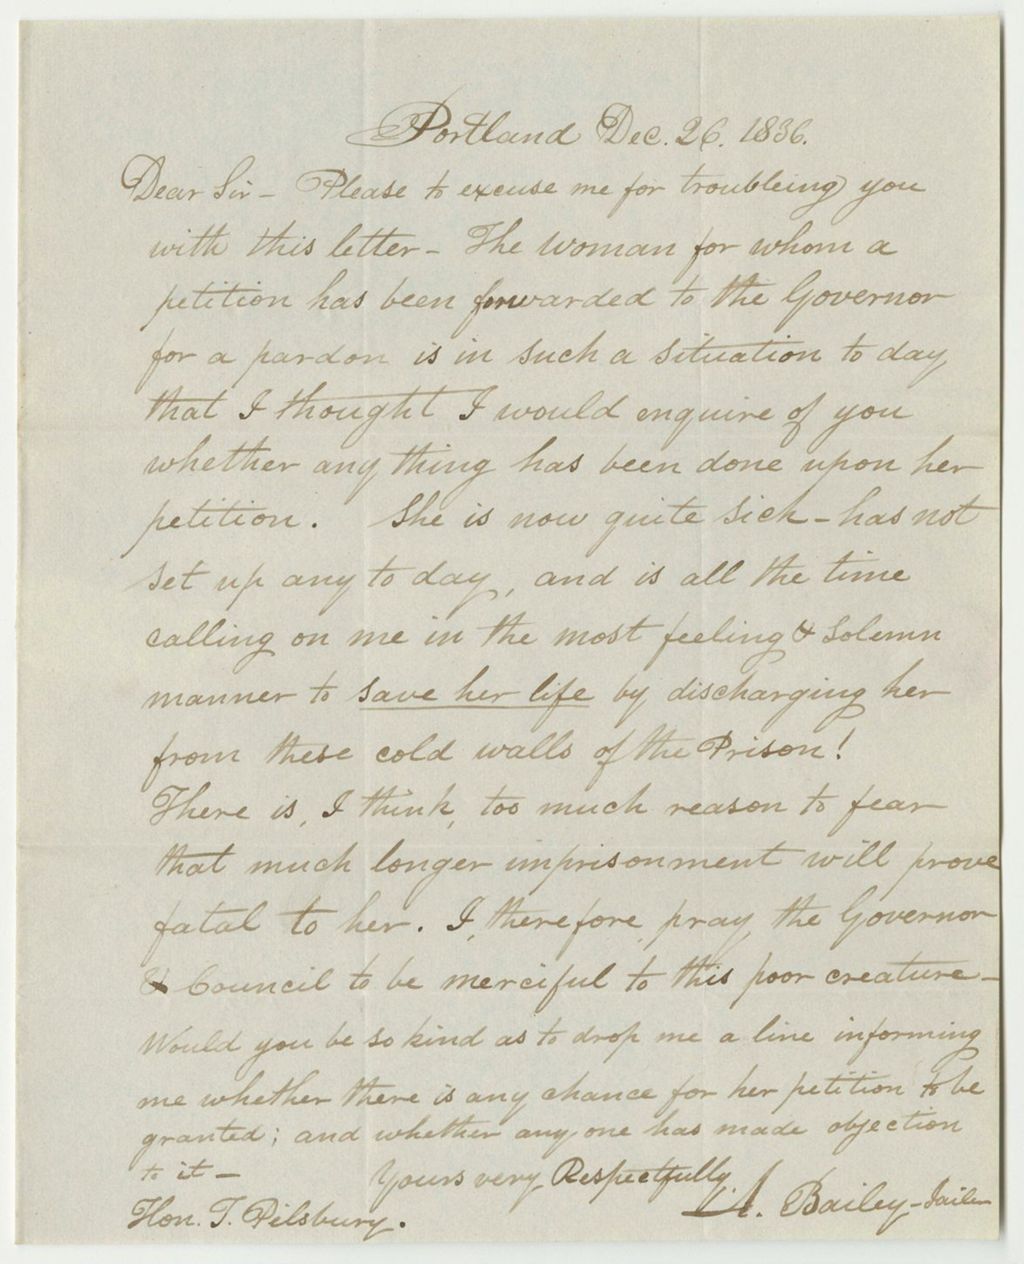 Portland Dec. 26. 1836.
Dear Sir - Please to excuse me for troubleing you
with this letter - The woman for whom a
petition has been forwarded to the Governor
for a pardon is in such a situation to day
that I thought I would enquire of you
whether any thing has been done upon her
petition. She is now quite sick - has not
set up any to day, and is all the time
calling on me in the most feeling & solemn
manner to save her life by discharging her
from these cold walls of the Prison!
There is, I think, too much reason to fear
that much longer imprisonment will prove
fatal to her. I, therefore, pray the Governor
& Council to be merciful to this poor creature -
Would you be so kind as to drop me a line informing
me whether there is any chance for her petition to be
granted; and whether any one has made objection
to it - Yours very Respectfully
Hon. T. Pilsbury. A. Bailey - Jailer